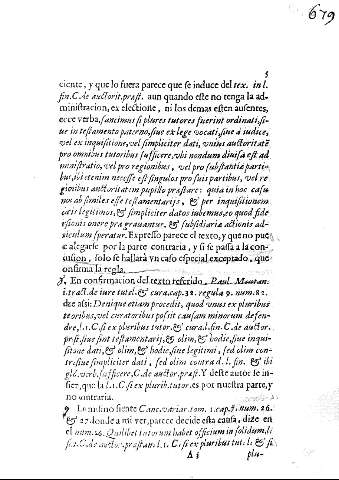 679
5
ciente, y que lo fuera parece que se induce del tex. in l.
fin. C. de auctorit. præst. aun quando este no tenga la ad-
ministracion, ex esectione, ni los demas esten ausentes,
ecce verba, sancimus si plures tutores fuerint ordinati, si-
ue in testamento paterno, siue ex lege vocati, siue à iudice,
vel ex inquisitione, vel simpliciter dati, vnius auctoritatẽ
pro omnibus tutoribus sufficere, vbi nondum diuisa est ad
ministratio, vel pro regionibus, vel pro substantiæ parti-
bus, ibi etenim necesse est singulos pro suis partibus, vel re
gionibus auctoritatem pupillo præstare: quia in hoc casu
nos ab similes esse testamentarijs, & per inquisitionem
datis legitimos, & simpliciter datos iubemus, eo quod fide
iussionis onere prægrauantur, & subsidiariæ actionis ad-
iutorium speratur. Expresso parece el texto, y que no pue
de alegarse por la parte contraria, y si se passa a la con-
fusion, solo se hallarà vn caso especial exceptado, que
confirma la regla.
En confirmacion del texto referido, Paul. Montan.
i. tract. de iure tutel. & cura. cap. 32. regula 9. num. 82.
dize assi: Denique etiam procedit, quod vnus ex pluribus
tutoribus, vel curatoribus possit causam minorum defen-
dere, l. 1. C. si ex pluribus tutor. & cura. l. fin. C. de auctor.
præst. siue sint testamentarij, & olim, & hodie, siue inqui-
sitione dati, & olim, & hodie, siue legitimi, sed olim con-
tra, siue simpliciter dati, sed olim contra d. l. fin. & ibi
glos. verb. sufficere, C. de auctor. præst. Y deste autor se in-
fiere, que la l. 1. C. si ex plurib. tutor. es por nuestra parte, y
no contraria.
Lo mismo siente Canc. variar. tom. 1. cap. 7. num. 26.
& 27. donde a mi ver, parece decide esta causa, dize en
el num. 26. Quilibet tutorum habet officium in solidum, l.
fi. C. de auctor. præstan. l. 1. C. si ex pluribus tut. l. si
A 3
plu-